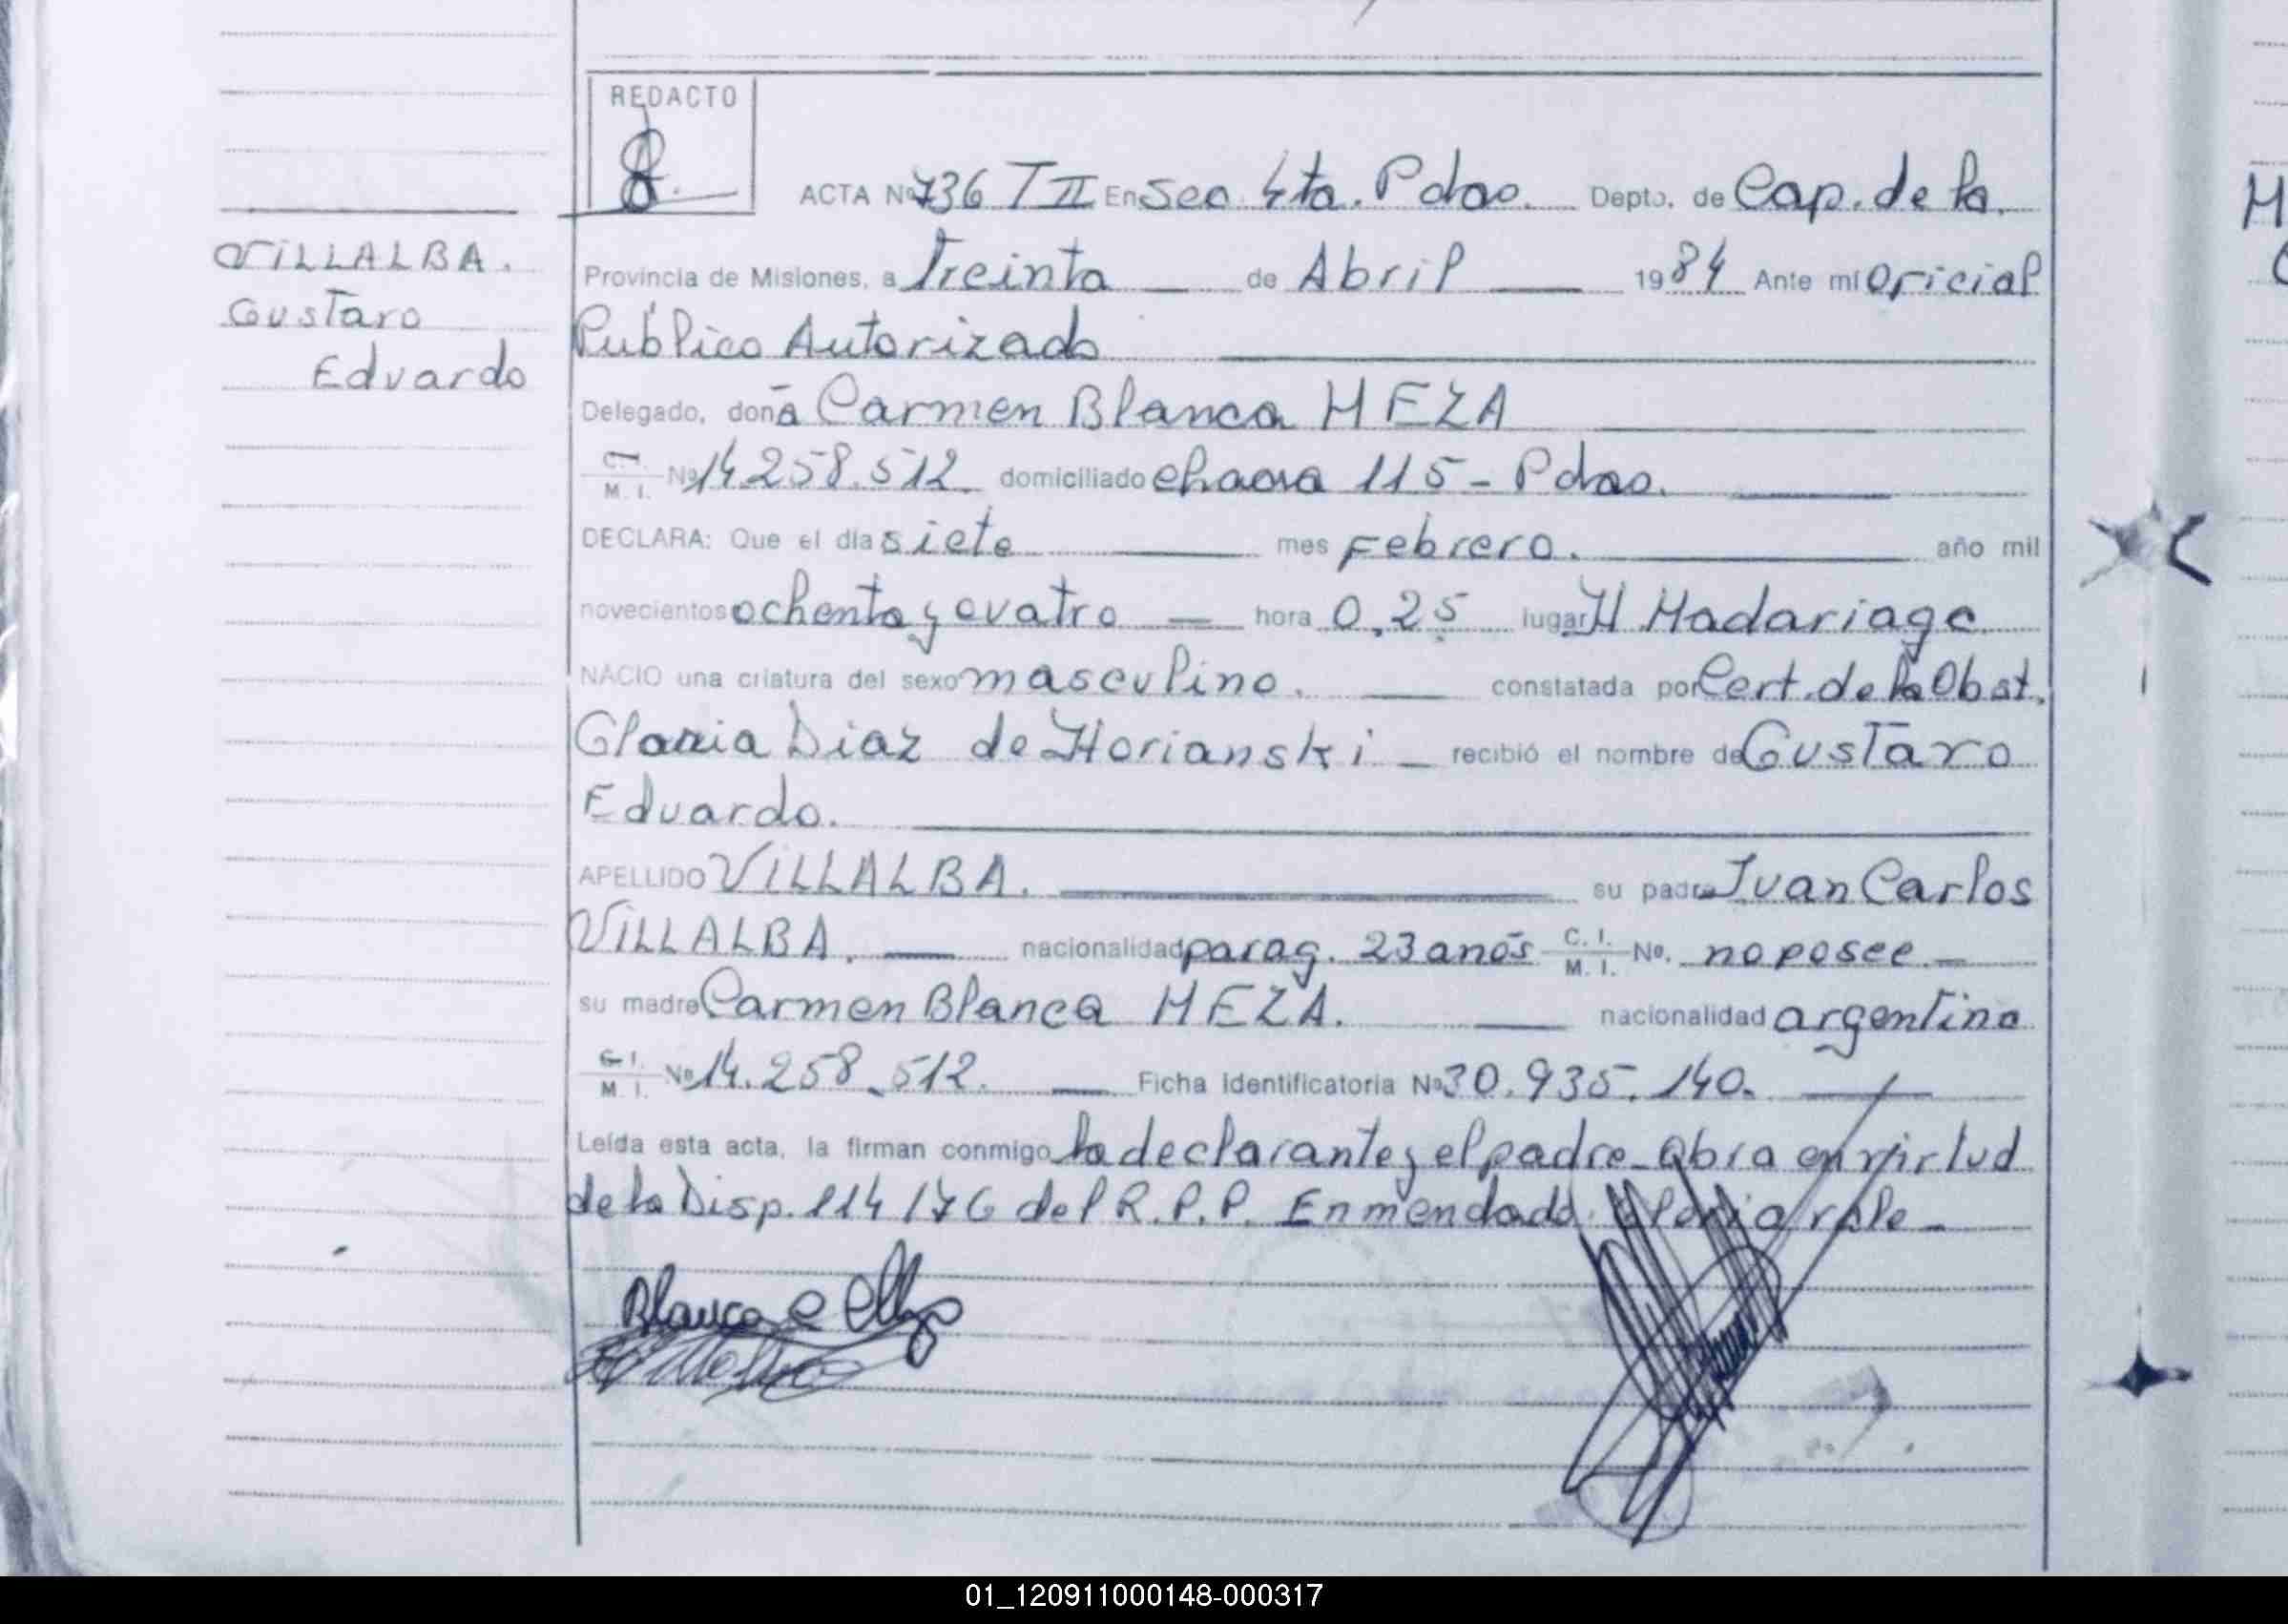 REDACTO
8
ACTA Nº 736 T II En Sec. 4ta. Pdas. Depto. de Cap. de la
VILLALBA.
Gustavo
Eduardo
Provincia de Misiones, a Treinta de Abril 1984 Ante mí Oficial
Público Autorizado
Delegado, doña Carmen Blanca MEZA
C. I. M. I. Nº 14.258.512. domiciliado chacra 115 - Pdas.
DECLARA: Que el día siete mes Febrero. año mil
novecientos ochenta y cuatro hora 0,25 lugar H. Madariaga
NACIO una criatura del sexo masculino. constatada por Cert. de la Obst.
Gloria Diaz de Horianski recibió el nombre de Gustavo
Eduardo.
APELLIDO VILLALBA. su padre Juan Carlos
VILLALBA. nacionalidad parag. 23 años C. I. M. I. No. no posee
su madre Carmen Blanca MEZA. nacionalidad argentina
C. I. M. I. Nº 14.258.512. Ficha Identificatoria Nº 30.935.140.
Leída esta acta, la firman conmigo la declarante y el padre - Obra en virtud
de la Disp. 114/76 del R.P.P. Enmendado: Gloria vale -
Blanca C
M
01_120911000148-000317